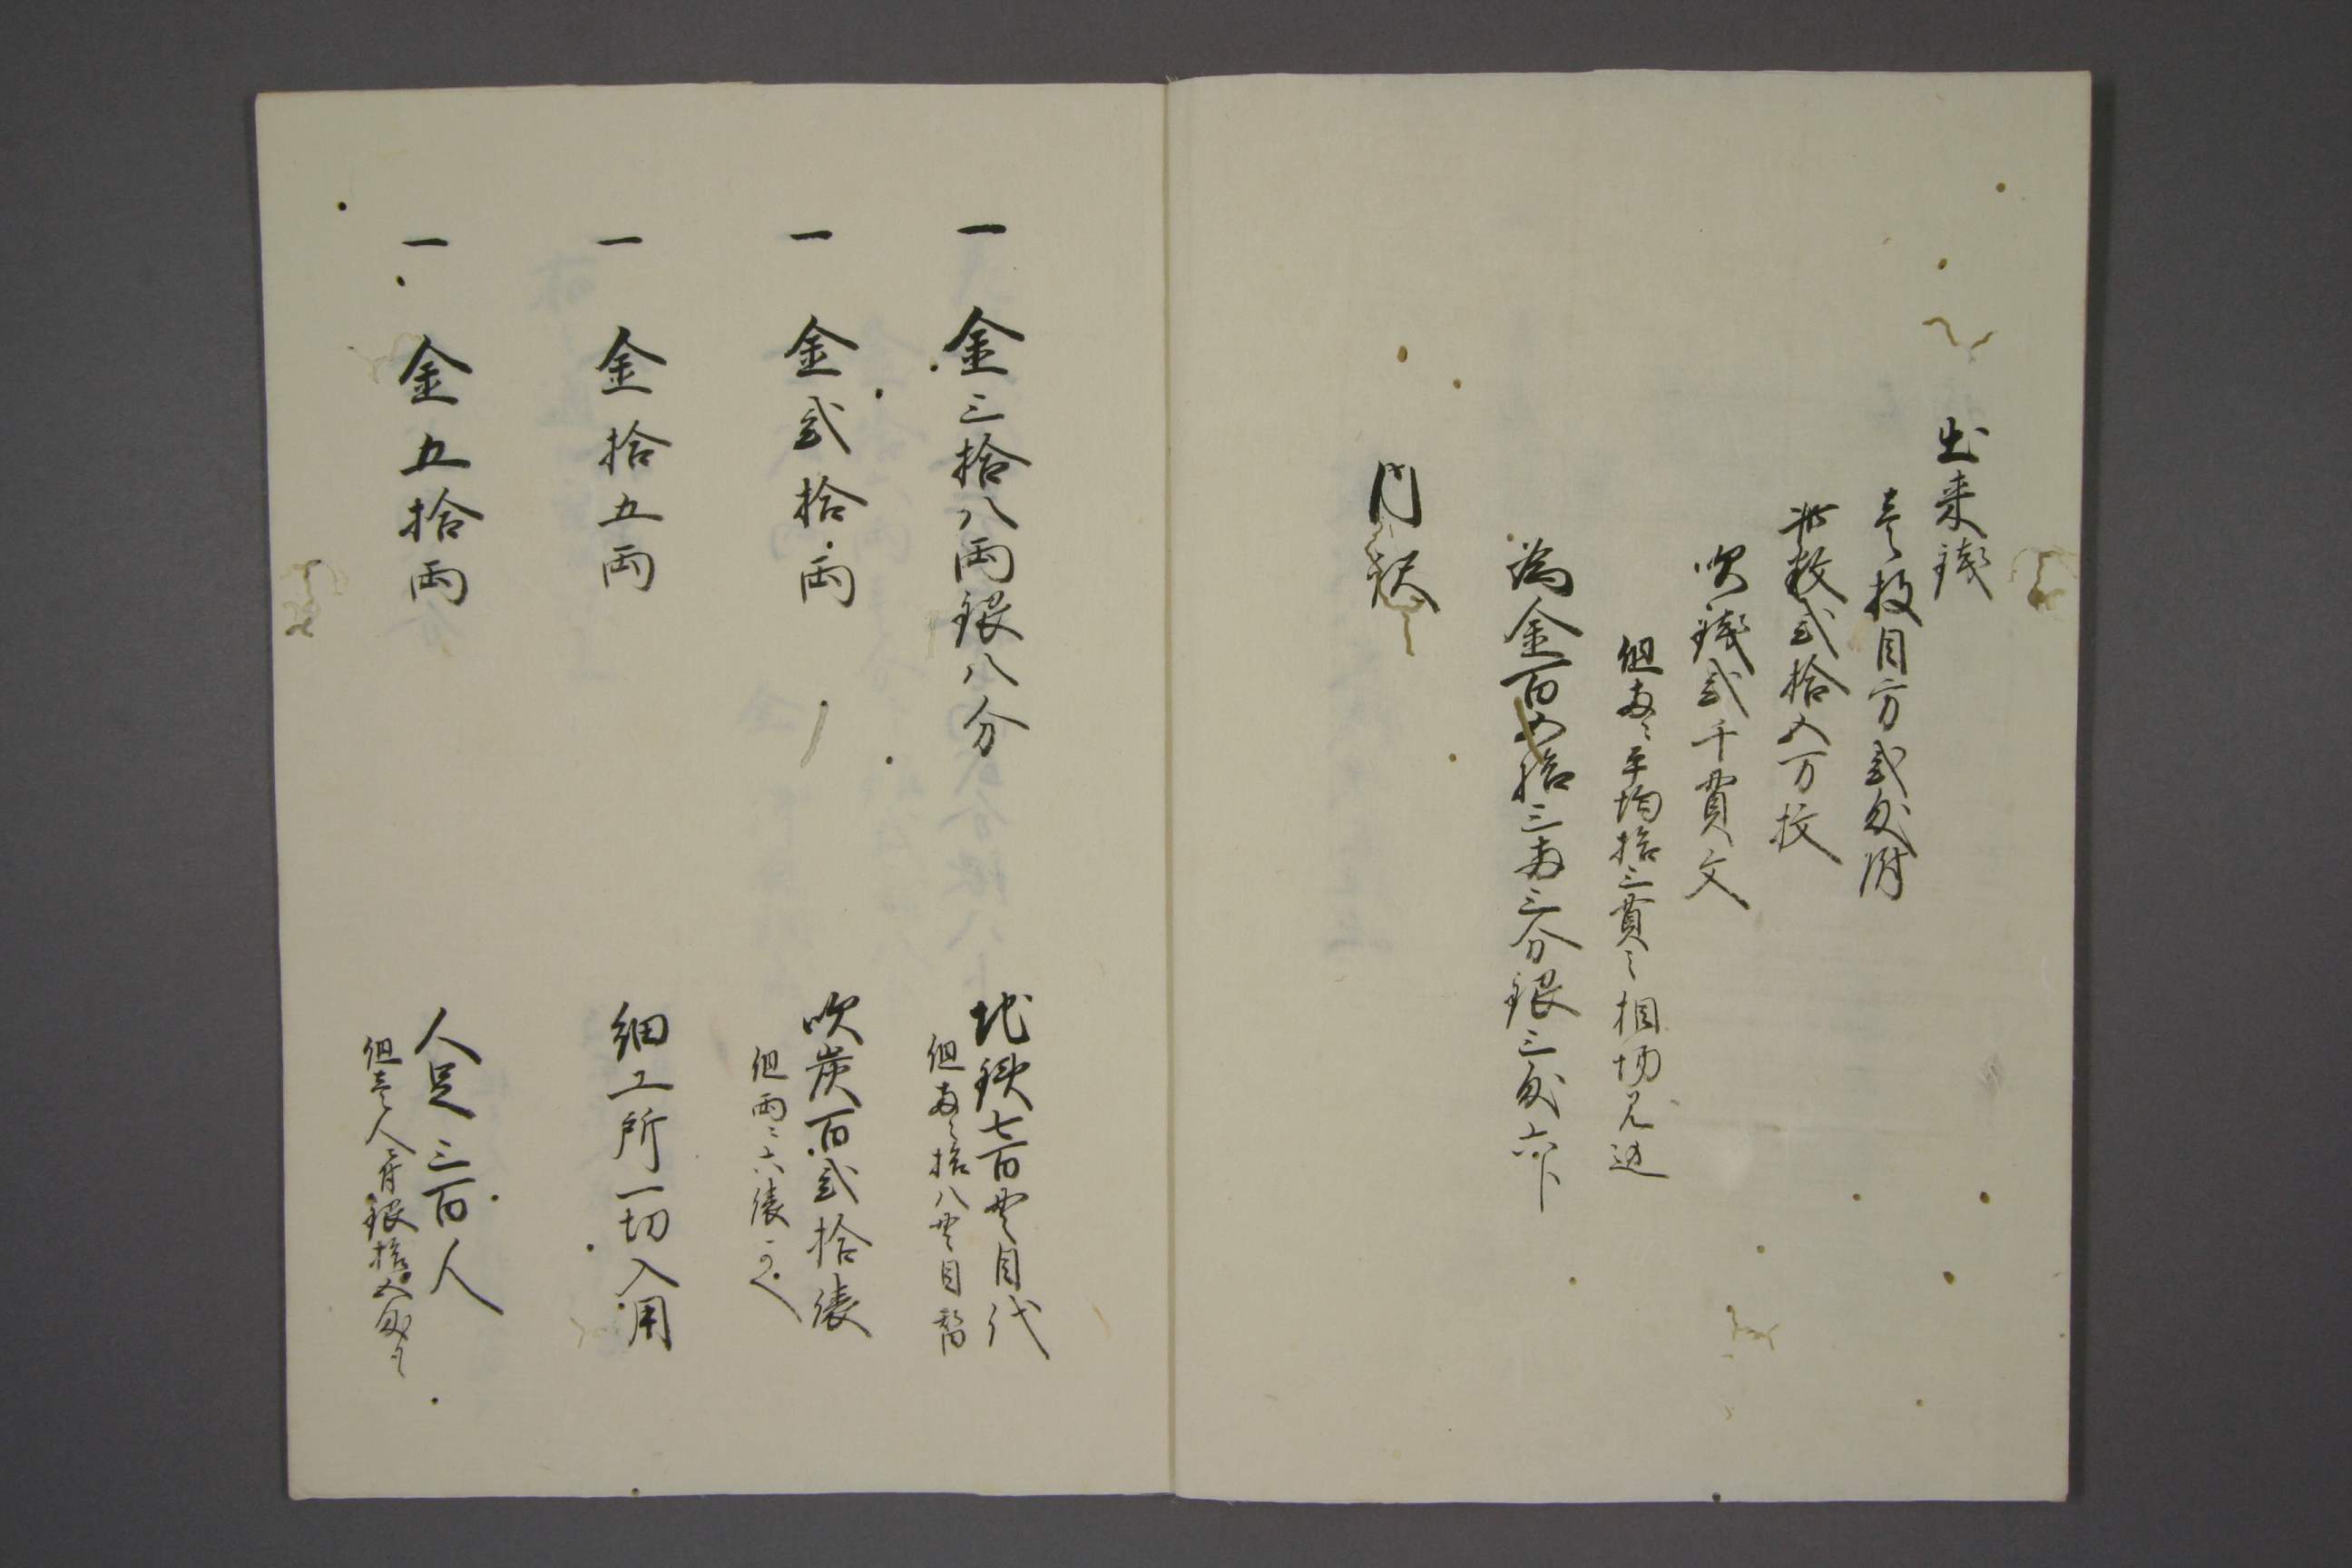 出来銭
壱枚目方弐匁附
此数弐拾五万枚
吹銭弐千貫文
但両ニ平均拾三貫之相場見込
為金百五拾三両三分銀三匁六卜
内訳
一 金三拾八両銀八分
地鉄七百貫目代
但両ニ拾八貫目替
一 金弐拾両
吹炭百弐拾俵
但両ニ六俵かへ
一 金拾五両
細工所一切入用
一 金五拾両
人足三百人
但壱人ニ付銀拾五匁ツヽ